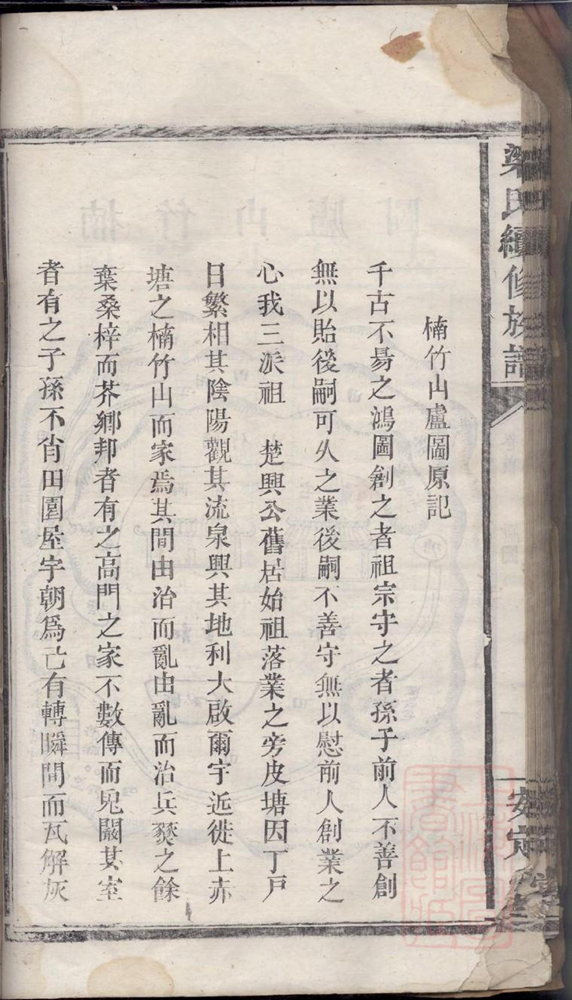 梁氏續修族譜
安定堂
楠竹山廬圖原記
千古不易之鴻圖創之者祖宗守之者孫子前人不善創
無以貽後嗣可久之業後嗣不善守無以慰前人創業之
心我三派祖 楚興公舊居始祖落業之旁皮塘因丁戸
日繁相其陰陽觀其流泉興其地利大啟爾宇近徙上赤
塘之楠竹山而家焉其間由治而亂由亂而治兵燹之餘
棄桑梓而芥鄉邦者有之高門之家不數傳而鬼闞其室
者有之子孫不肖田園屋宇朝爲己有轉瞬間而瓦解灰